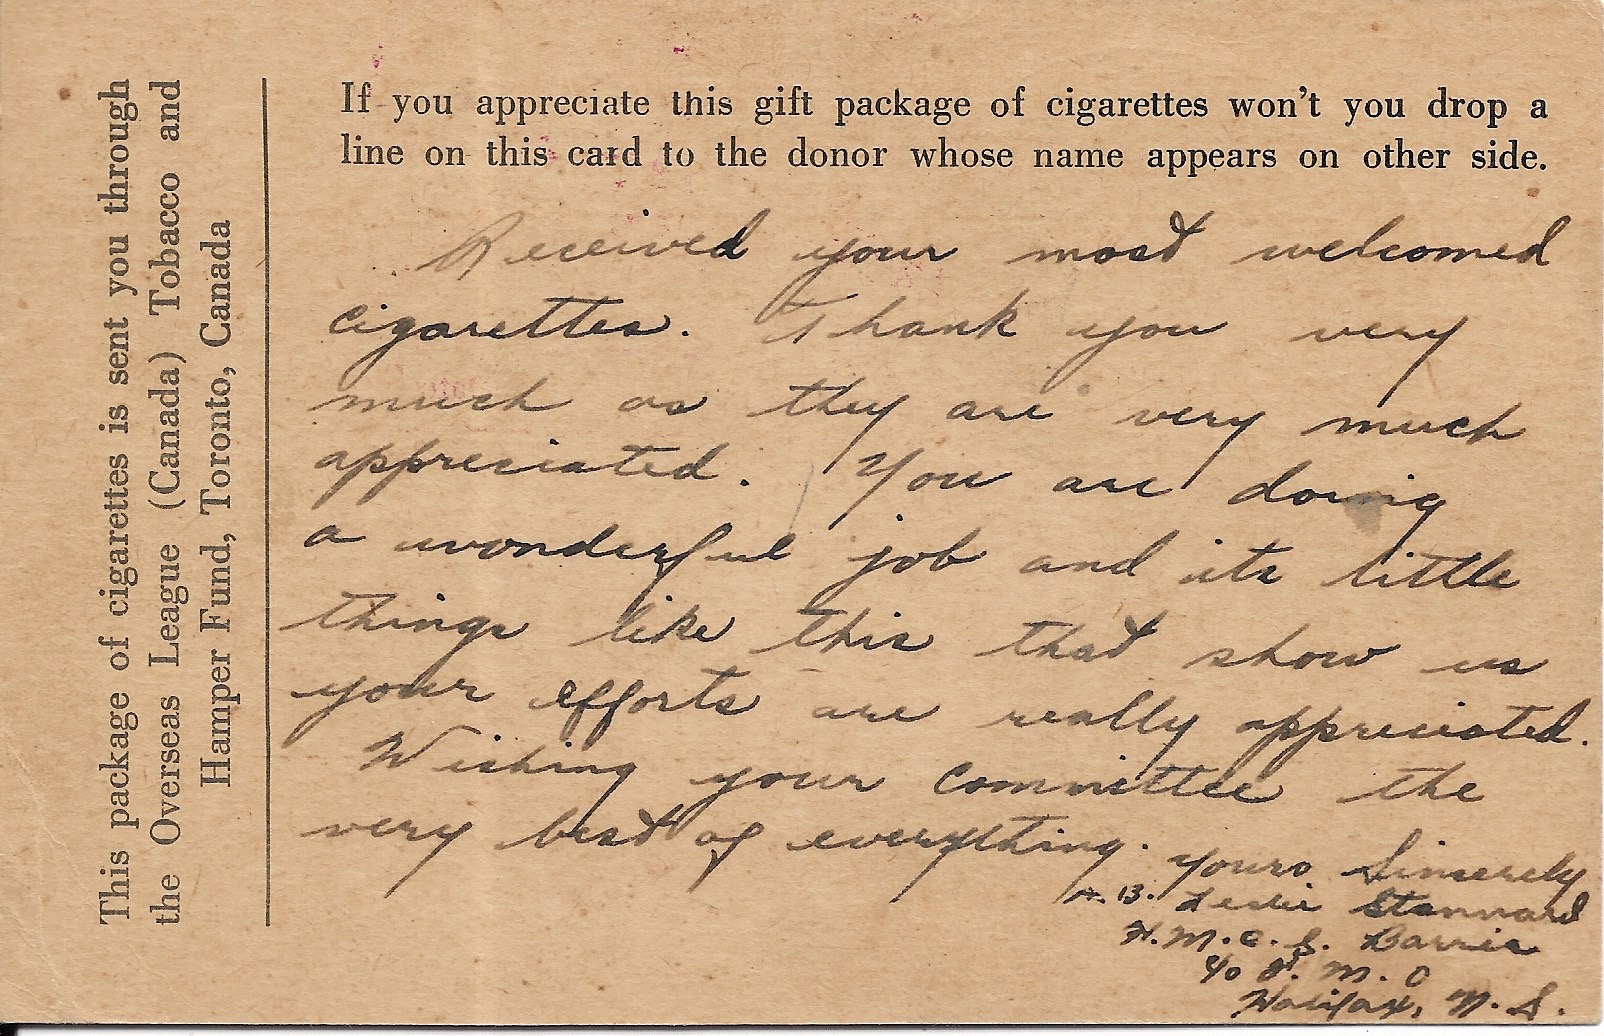 This package of cigarettes is sent you through
the Overseas League (Canada) Tobacco and
Hamper Fund, Toronto, Canada
If you appreciate this gift package of cigarettes won't you drop a
line on this card to the donor whose name appears on other side.
Received your most welcomed
cigarettes. Thank you very
much as they are very much
appreciated. You are doing
a wonderful job and its little
things like this that show us
your efforts are really appreciated.
Wishing your committee the
very best of everything.
Yours Sincerely
A.B. Leslie Stannard
H.M.C.S. Barrie
c/o F.M.O
Halifax, N.S.